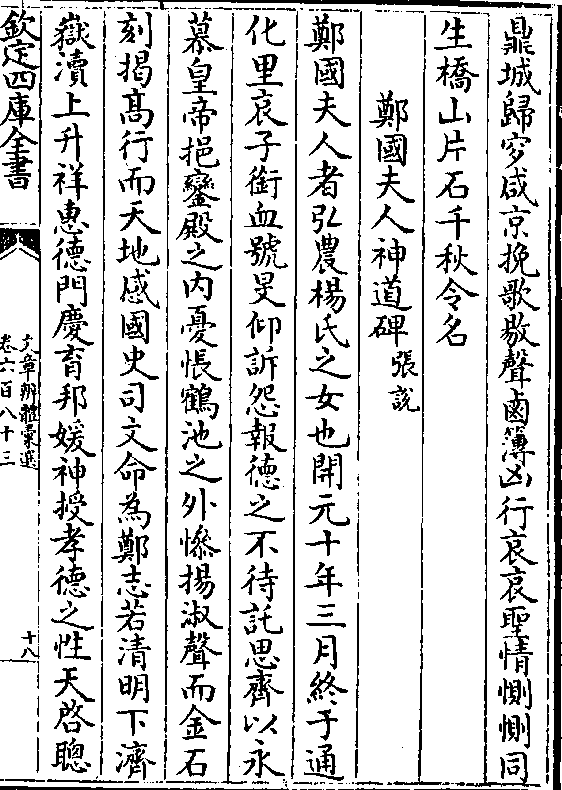 鼎城歸穸咸京挽歌散聲鹵簿凶行哀哀聖情惻惻同
生橋山片石千秋令名
鄭國夫人神道碑
張說
鄭國夫人者弘農楊氏之女也開元十年三月終于通
化里哀子銜血號旻仰訴怨報德之不待託思齊以永
慕皇帝挹鑾殿之内憂悵鶴池之外慘揚淑聲而金石
刻揭高行而天地感國史司文命為鄭志若清明下濟
嶽瀆上升祥惠德門慶育邦媛神授孝德之性天啓聰
欽定四庫全書
文章辨體彙選
卷六百八十三
十八